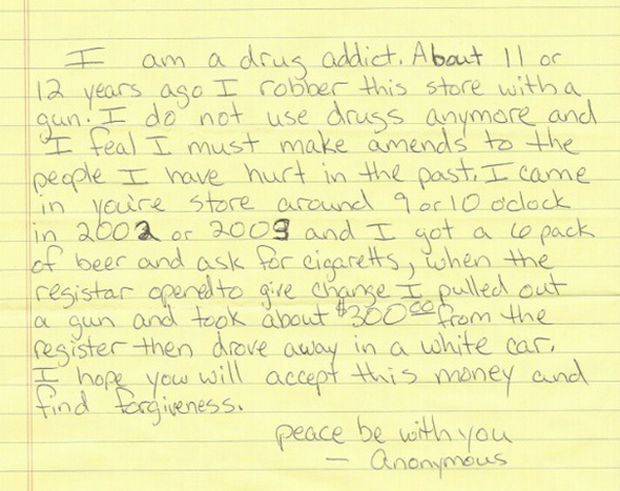 I am a drug addict. About 11 or
12 years ago I robber this store with a
gun. I do not use drugs anymore and
I feal I must make amends to the
people I have hurt in the past. I came
in you're store around 9 or 10 o'clock
in 2002 or 2003 and I got a 6 pack
of beer and ask for cigaretts, when the
registar opened to give change I pulled out
a gun and took about $300.00 from the
register then drove away in a white car.
I hope you will accept this money and
find forgiveness.
peace be with you
- anonymous